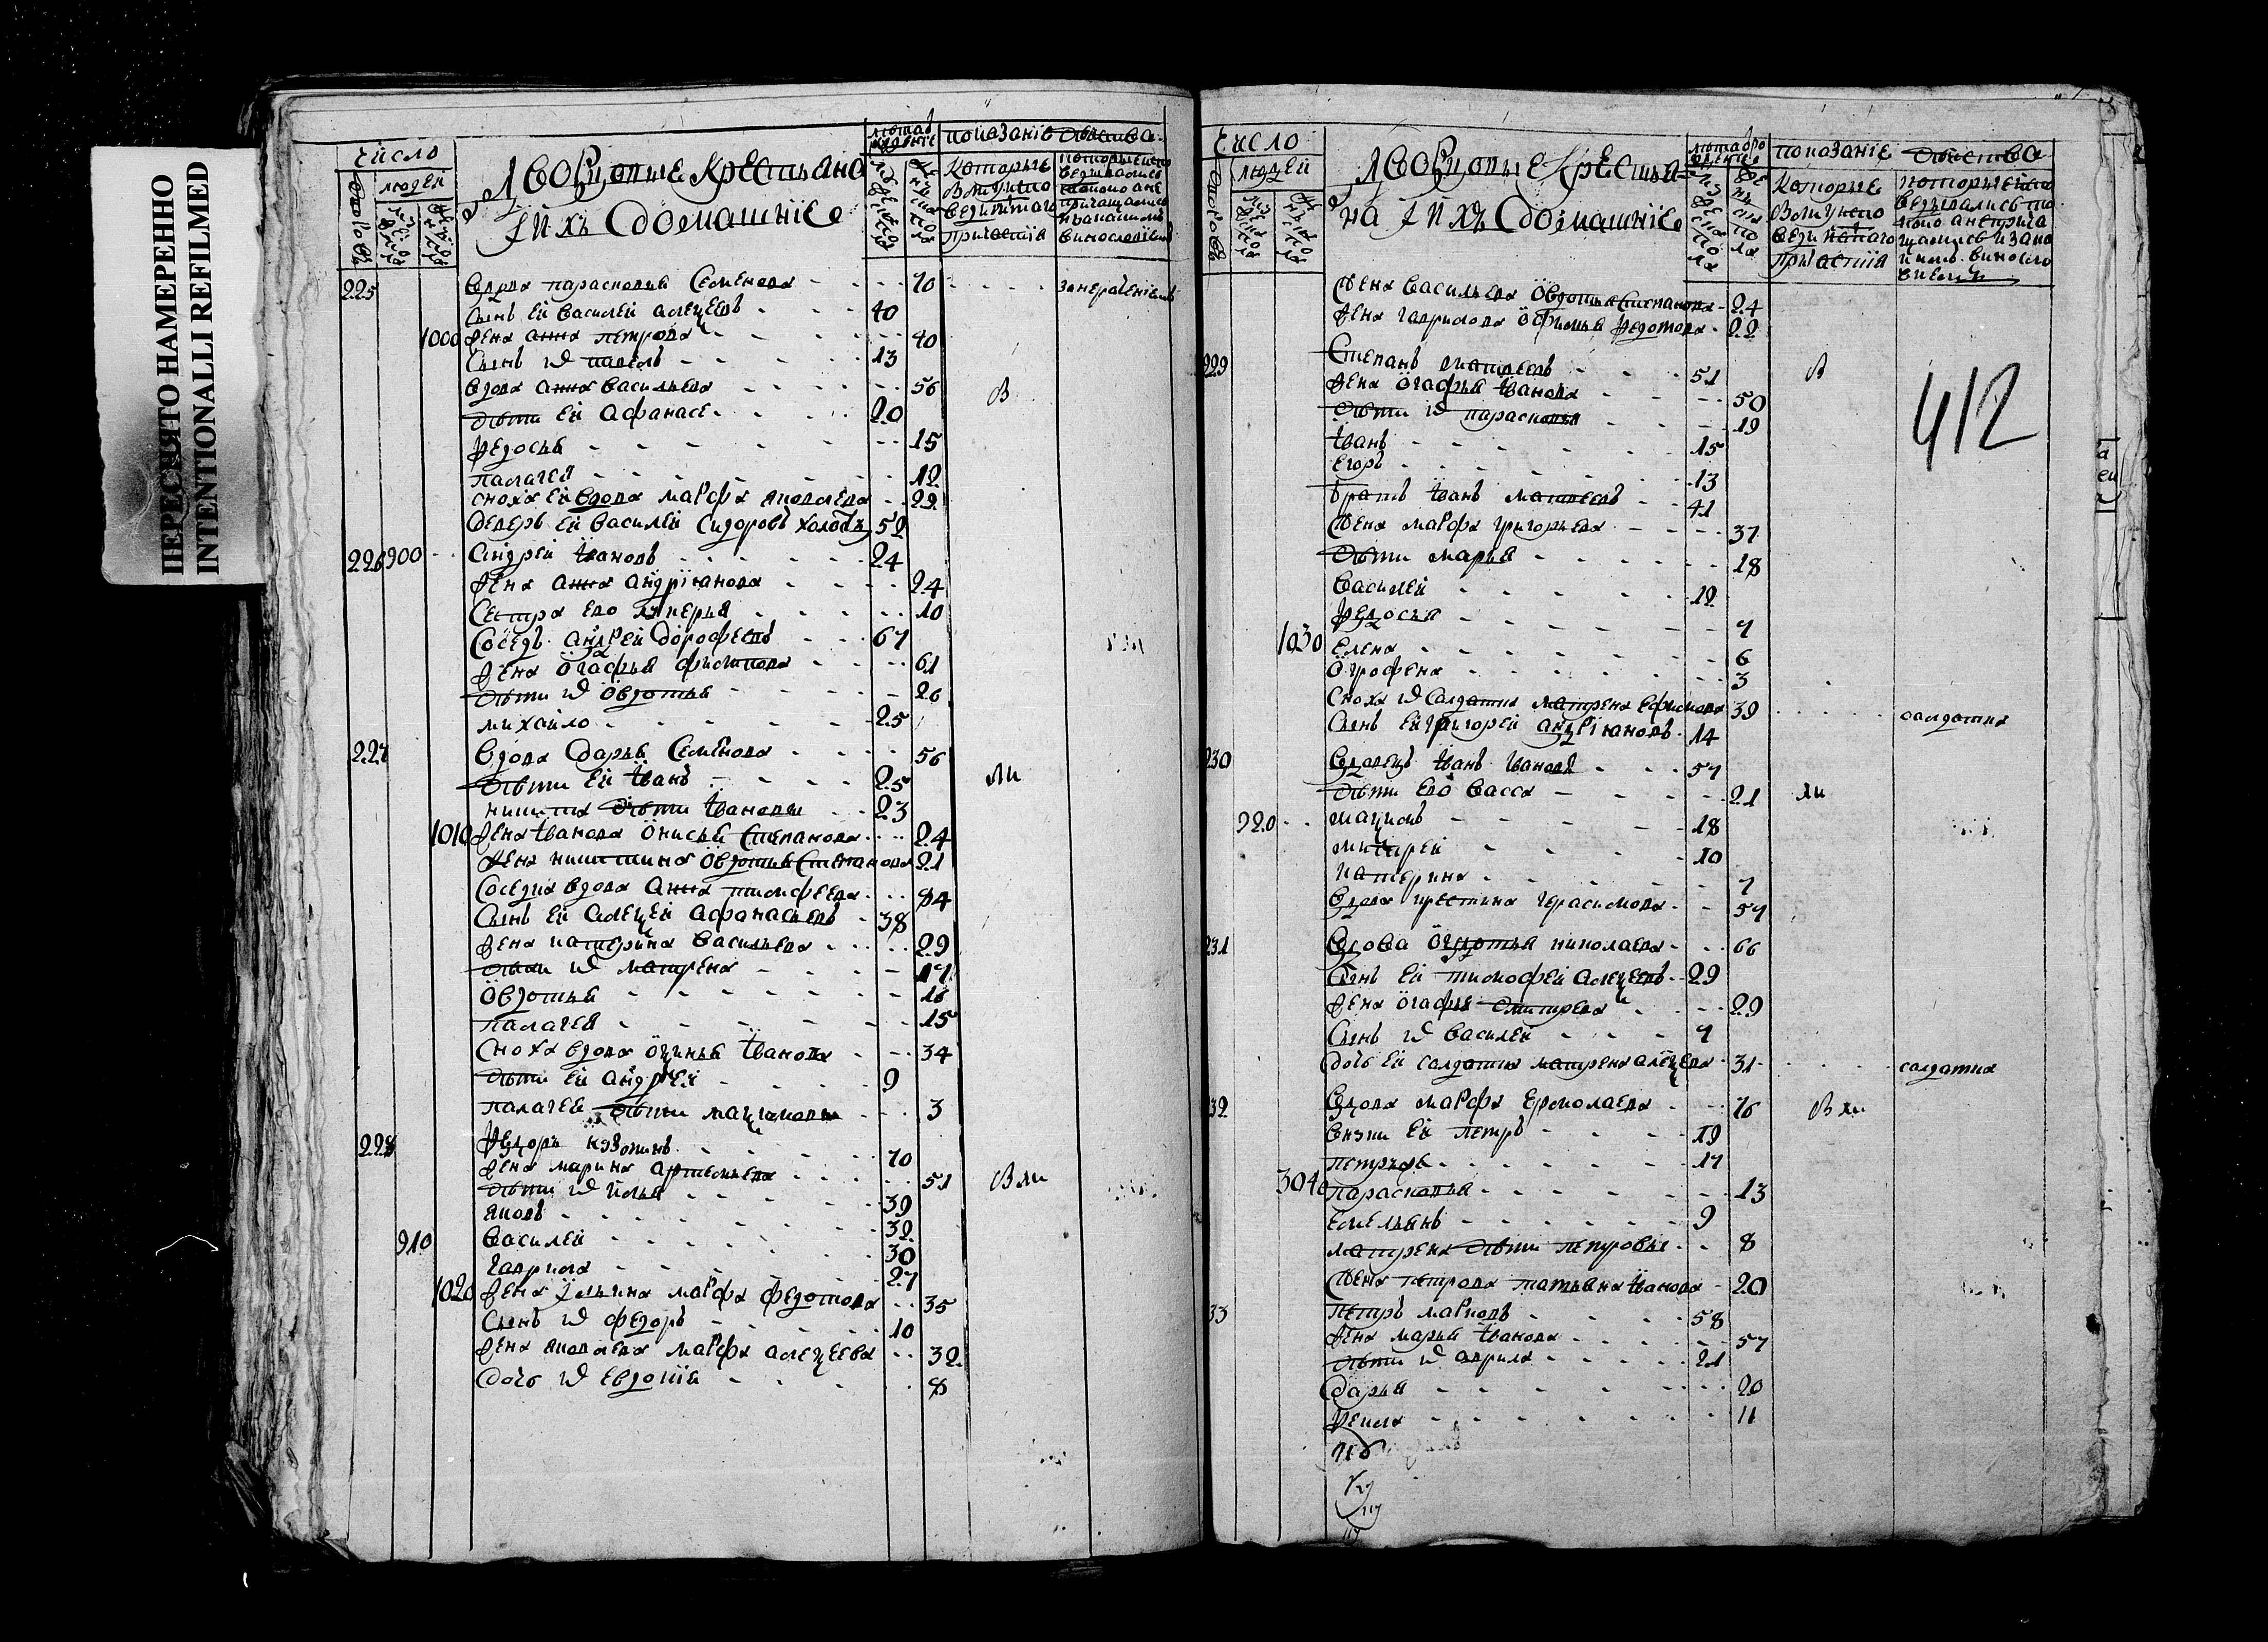 ПЕРЕСНЯТО НАМЕРЕННО
INTENTIONALLI REFILMED
число
людей
дворцовые крестьяна
и ихъ домашние
показание действа
225 вдова парасковья Семенова 70
сынъ ей василей алеѯеевъ 40
1000 жена анна петрова 40
сынъ их павелъ 13
вдова анна васильева 56 в
дети ей афанасе 20
федосья 15
палагея 12
сноха ей вдова марфа яковлева 29
деверь ей василей Сидоровъ холостъ 52
226 900 андрей ивановъ 24
жена анна андриянова 24
сестра ево 10
соседъ андрей дорофеевъ 67
жена огафья филипова 61
дети их овдотья 26
михайло 25
227 вдова дарья Семенова 56
дети ей иванъ 25 ли
никита дети ивановы 23
1010 жена иванова онисья степанова 24
жена никитина овдотья степанова 21
соседка вдова анна тимофеева 84
сынъ ей алеѯей афанасьевъ 38
жена катерина васильева 29
дети их матрена 17
овдотья 16
палагея 15
сноха вдова оѯинья иванова 34
дети ей андрей 9
палагея дети маѯимовы 3
228 федоръ 70
жена марина артемьева 51 в ли
дети их илья 39
яковъ 32
910 василей 30
гаврила 27
1020 жена ильина марфа федотова 35
сынъ их федоръ 10
жена яковлева марфа алеѯеева 32
дочь их евдокия 8
число
людей
дворцовые крестья=
на и ихъ домашние
показание действа
которые
жена васильева овдотья степанова 24
жена гаврилова офимья федотова 22
229 степанъ матвеевъ 51 в
жена огафья иванова 50
дети их парасковья 19
иванъ 15
егоръ 13
412
братъ иванъ матвеевъ 41
жена марфа григорьева 37
дети марья 18
василей 12
федосья 7
1030 елена 6
огрофена 3
сноха их салдатка матрена ефимова 39 салдатка
сынъ ей григорей андрияновъ 14
230 вдовецъ иванъ ивановъ 57
дети ево васса 21 ли
920 маѯимъ 18
митрей 10
катерина 7
вдова крестина герасимова 57
231 вдова овдотья николаева 66
сынъ ей тимофей алеѯеевъ 29
жена огафья дмитрева 29
сынъ их василей 7
дочь ей салдатка матрена алеѯева 31 салдатка
32 вдова марфа ермолаева 76 в ли
внуки ей петръ 19
петръ же 17
3040 парасковья 13
емельянъ 9
матрена дети петровы 8
жена петрова татьяна иванова 20
33 петръ марковъ 58
жена марья иванова 57
дети их гаврила 21
дарья 20
фекла 11